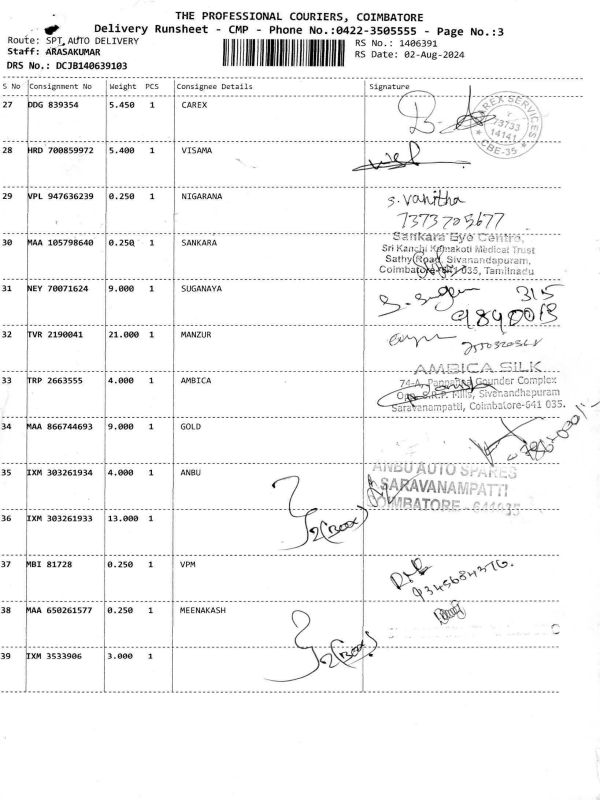 THE PROFESSIONAL COURIERS, COIMBATORE
Delivery Runsheet - CMP - Phone No.:0422-3505555 - Page No.:3
Route: SPT AUTO DELIVERY
RS No.: 1406391
Staff: ARASAKUMAR
RS Date: 02-Aug-2024
DRS No.: DCJB140639103
S No Consignment No Weight PCS Consignee Details Signature
27 DDG 839354 5.450 1 CAREX
CAREX SERVICES
73733
14141
CBE-35
28 HRD 700859972 5.400 1 VISAMA
29 VPL 947636239 0.250 1 NIGARANA
S. Vanitha
7373705677
30 MAA 105798640 0.250 1 SANKARA
Sankara Eye Centre,
Sri Kanchi Kamakoti Medical Trust
Sathy Road, Sivanandapuram,
Coimbatore-641 035, Tamilnadu
31 NEY 70071624 9.000 1 SUGANAYA
315
32 TVR 2190041 21.000 1 MANZUR
33 TRP 2663555 4.000 1 AMBICA
AMBICA SILK
74-A, Gounder Complex
Opp. S.R.P. Mills, Sivanandhapuram
Saravanampatti, Coimbatore-641 035.
34 MAA 866744693 9.000 1 GOLD
35 IXM 303261934 4.000 1 ANBU
ANBU AUTO SPARES
SARAVANAMPATTI
COIMBATORE - 641035
36 IXM 303261933 13.000 1
2(Box)
37 MBI 81728 0.250 1 VPM
9345684376.
38 MAA 650261577 0.250 1 MEENAKASH
39 IXM 3533906 3.000 1
2(Box)